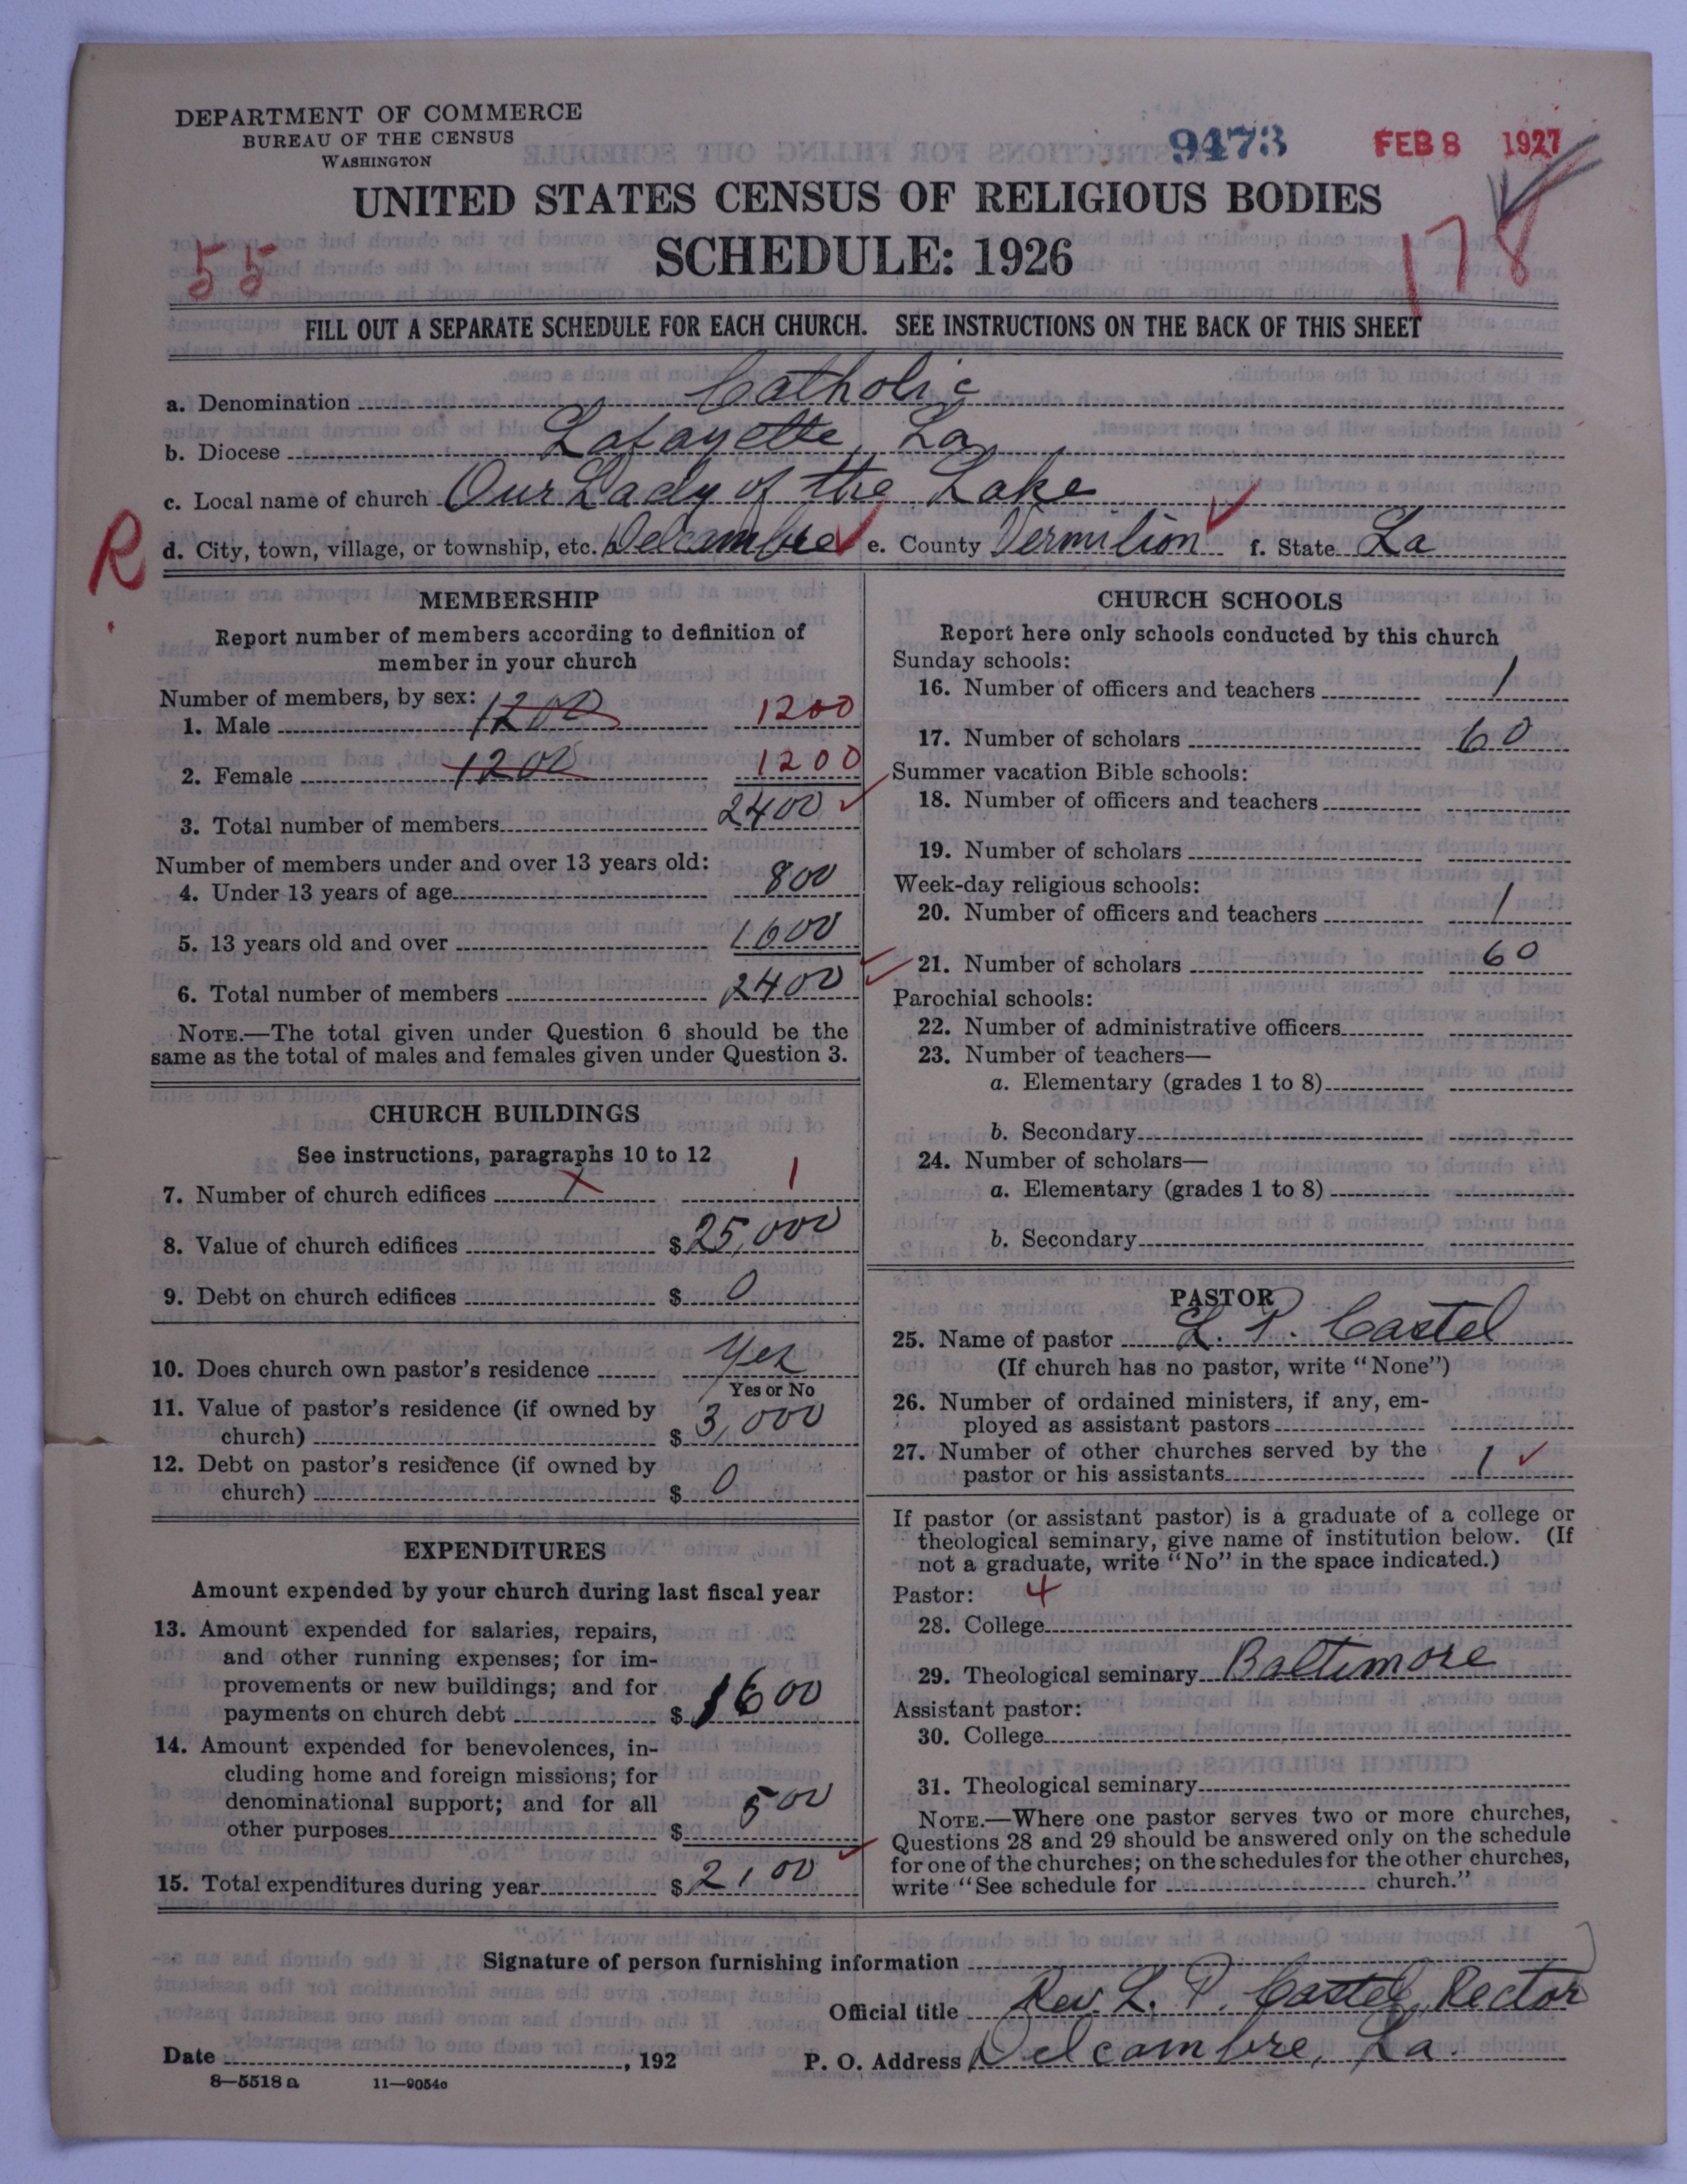 DEPARTMENT OF COMMERCE
BUREAU OF THE CENSUS
WASHINGTON
9473
FEB 8 1927
UNITED STATES CENSUS OF RELIGIOUS BODIES
SCHEDULE: 1926
55
178
FILL OUT A SEPARATE SCHEDULE FOR EACH CHURCH. SEE INSTRUCTIONS ON THE BACK OF THIS SHEET
a. Denomination Catholic
b. Diocese Lafayette, La
c. Local name of church Our Lady of the Lake
R
d. City, town, village, or township, etc. Delcambre e. County Vermilion f. State La
MEMBERSHIP
Report number of members according to definition of
member in your church
Number of members, by sex:
1. Male 1200 1200
2. Female 1200 1200
3. Total number of members 2400
Number of members under and over 13 years old:
4. Under 13 years of age 800
5. 13 years old and over 1600
6. Total number of members 2400
NOTE.—The total given under Question 6 should be the
same as the total of males and females given under Question 3.
CHURCH BUILDINGS
See instructions, paragraphs 10 to 12
7. Number of church edifices 1 1
8. Value of church edifices $ 25,000
9. Debt on church edifices $ 0
10. Does church own pastor's residence Yes
Yes or No
11. Value of pastor's residence (if owned by
church) $ 3,000
12. Debt on pastor's residence (if owned by
church) $ 0
EXPENDITURES
Amount expended by your church during last fiscal year
13. Amount expended for salaries, repairs,
and other running expenses; for im-
provements or new buildings; and for
payments on church debt $ 1600
14. Amount expended for benevolences, in-
cluding home and foreign missions; for
denominational support; and for all
other purposes $ 500
15. Total expenditures during year $ 2100
CHURCH SCHOOLS
Report here only schools conducted by this church
Sunday schools:
16. Number of officers and teachers 1
17. Number of scholars 60
Summer vacation Bible schools:
18. Number of officers and teachers
19. Number of scholars
Week-day religious schools:
20. Number of officers and teachers 1
21. Number of scholars 60
Parochial schools:
22. Number of administrative officers
23. Number of teachers—
a. Elementary (grades 1 to 8)
b. Secondary
24. Number of scholars—
a. Elementary (grades 1 to 8)
b. Secondary
PASTOR
25. Name of pastor L. P. Castel
(If church has no pastor, write "None")
26. Number of ordained ministers, if any, em-
ployed as assistant pastors
27. Number of other churches served by the
pastor or his assistants 1
If pastor (or assistant pastor) is a graduate of a college or
theological seminary, give name of institution below. (If
not a graduate, write "No" in the space indicated.)
Pastor: 4
28. College
29. Theological seminary Baltimore
Assistant pastor:
30. College
31. Theological seminary
NOTE.—Where one pastor serves two or more churches,
Questions 28 and 29 should be answered only on the schedule
for one of the churches; on the schedules for the other churches,
write "See schedule for church."
Signature of person furnishing information
Official title Rev. L. P. Castel, Rector
Date , 192 P. O. Address Delcambre, La.
8—5518 a 11—9054c